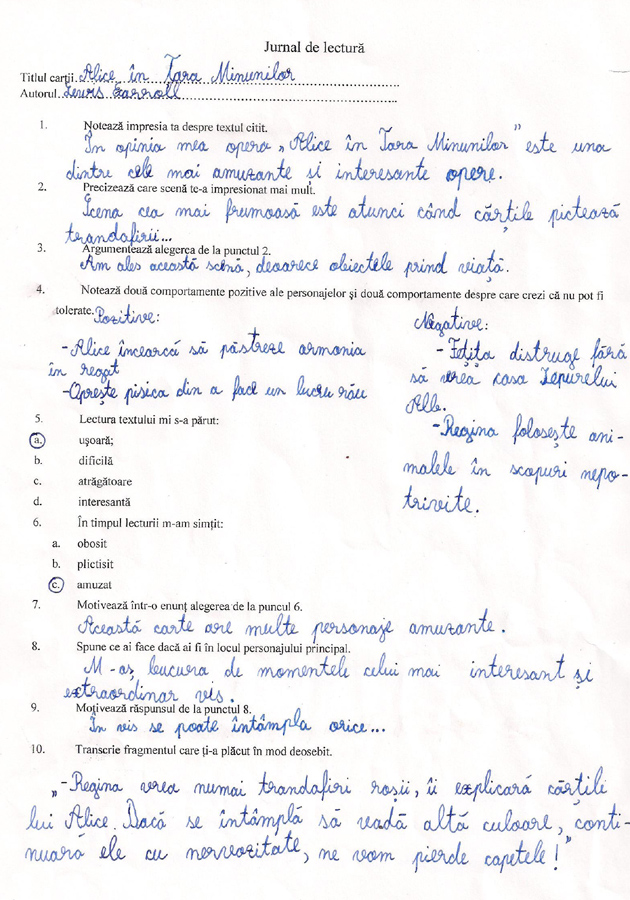 Jurnal de lectură
Titlul cărții Alice în Țara Minunilor
Autorul Lewis Carroll
1. Notează impresia ta despre textul citit.
În opinia mea opera „Alice în Țara Minunilor" este una
dintre cele mai amuzante și interesante opere.
2. Precizează care scenă te-a impresionat mai mult.
Scena cea mai frumoasă este atunci când cărțile pictează
trandafirii...
3. Argumentează alegerea de la punctul 2.
Am ales această scenă, deoarece obiectele prind viață.
4. Notează două comportamente pozitive ale personajelor și două comportamente despre care crezi că nu pot fi
tolerate.
Pozitive:
-Alice încearcă să păstreze armonia
în regat
-Oprește pisica din a face un lucru rău
Negative:
-Fetița distruge fără
să vrea casa Iepurelui
Alb.
-Regina folosește ani-
malele în scopuri nepo-
trivite.
5. Lectura textului mi s-a părut:
a. ușoară;
b. dificilă
c. atrăgătoare
d. interesantă
6. În timpul lecturii m-am simțit:
a. obosit
b. plictisit
c. amuzat
7. Motivează într-o enunț alegerea de la puncul 6.
Această carte are multe personaje amuzante.
8. Spune ce ai face dacă ai fi în locul personajului principal.
M-aș bucura de momentele celui mai interesant și
extraordinar vis.
9. Motivează răspunsul de la punctul 8.
În vis se poate întâmpla orice...
10. Transcrie fragmentul care ți-a plăcut în mod deosebit.
„-Regina vrea numai trandafiri roșii, îi explicară cărțile
lui Alice. Dacă se întâmplă să vadă altă culoare, conti-
nuară ele cu nervozitate, ne vom pierde capetele!"